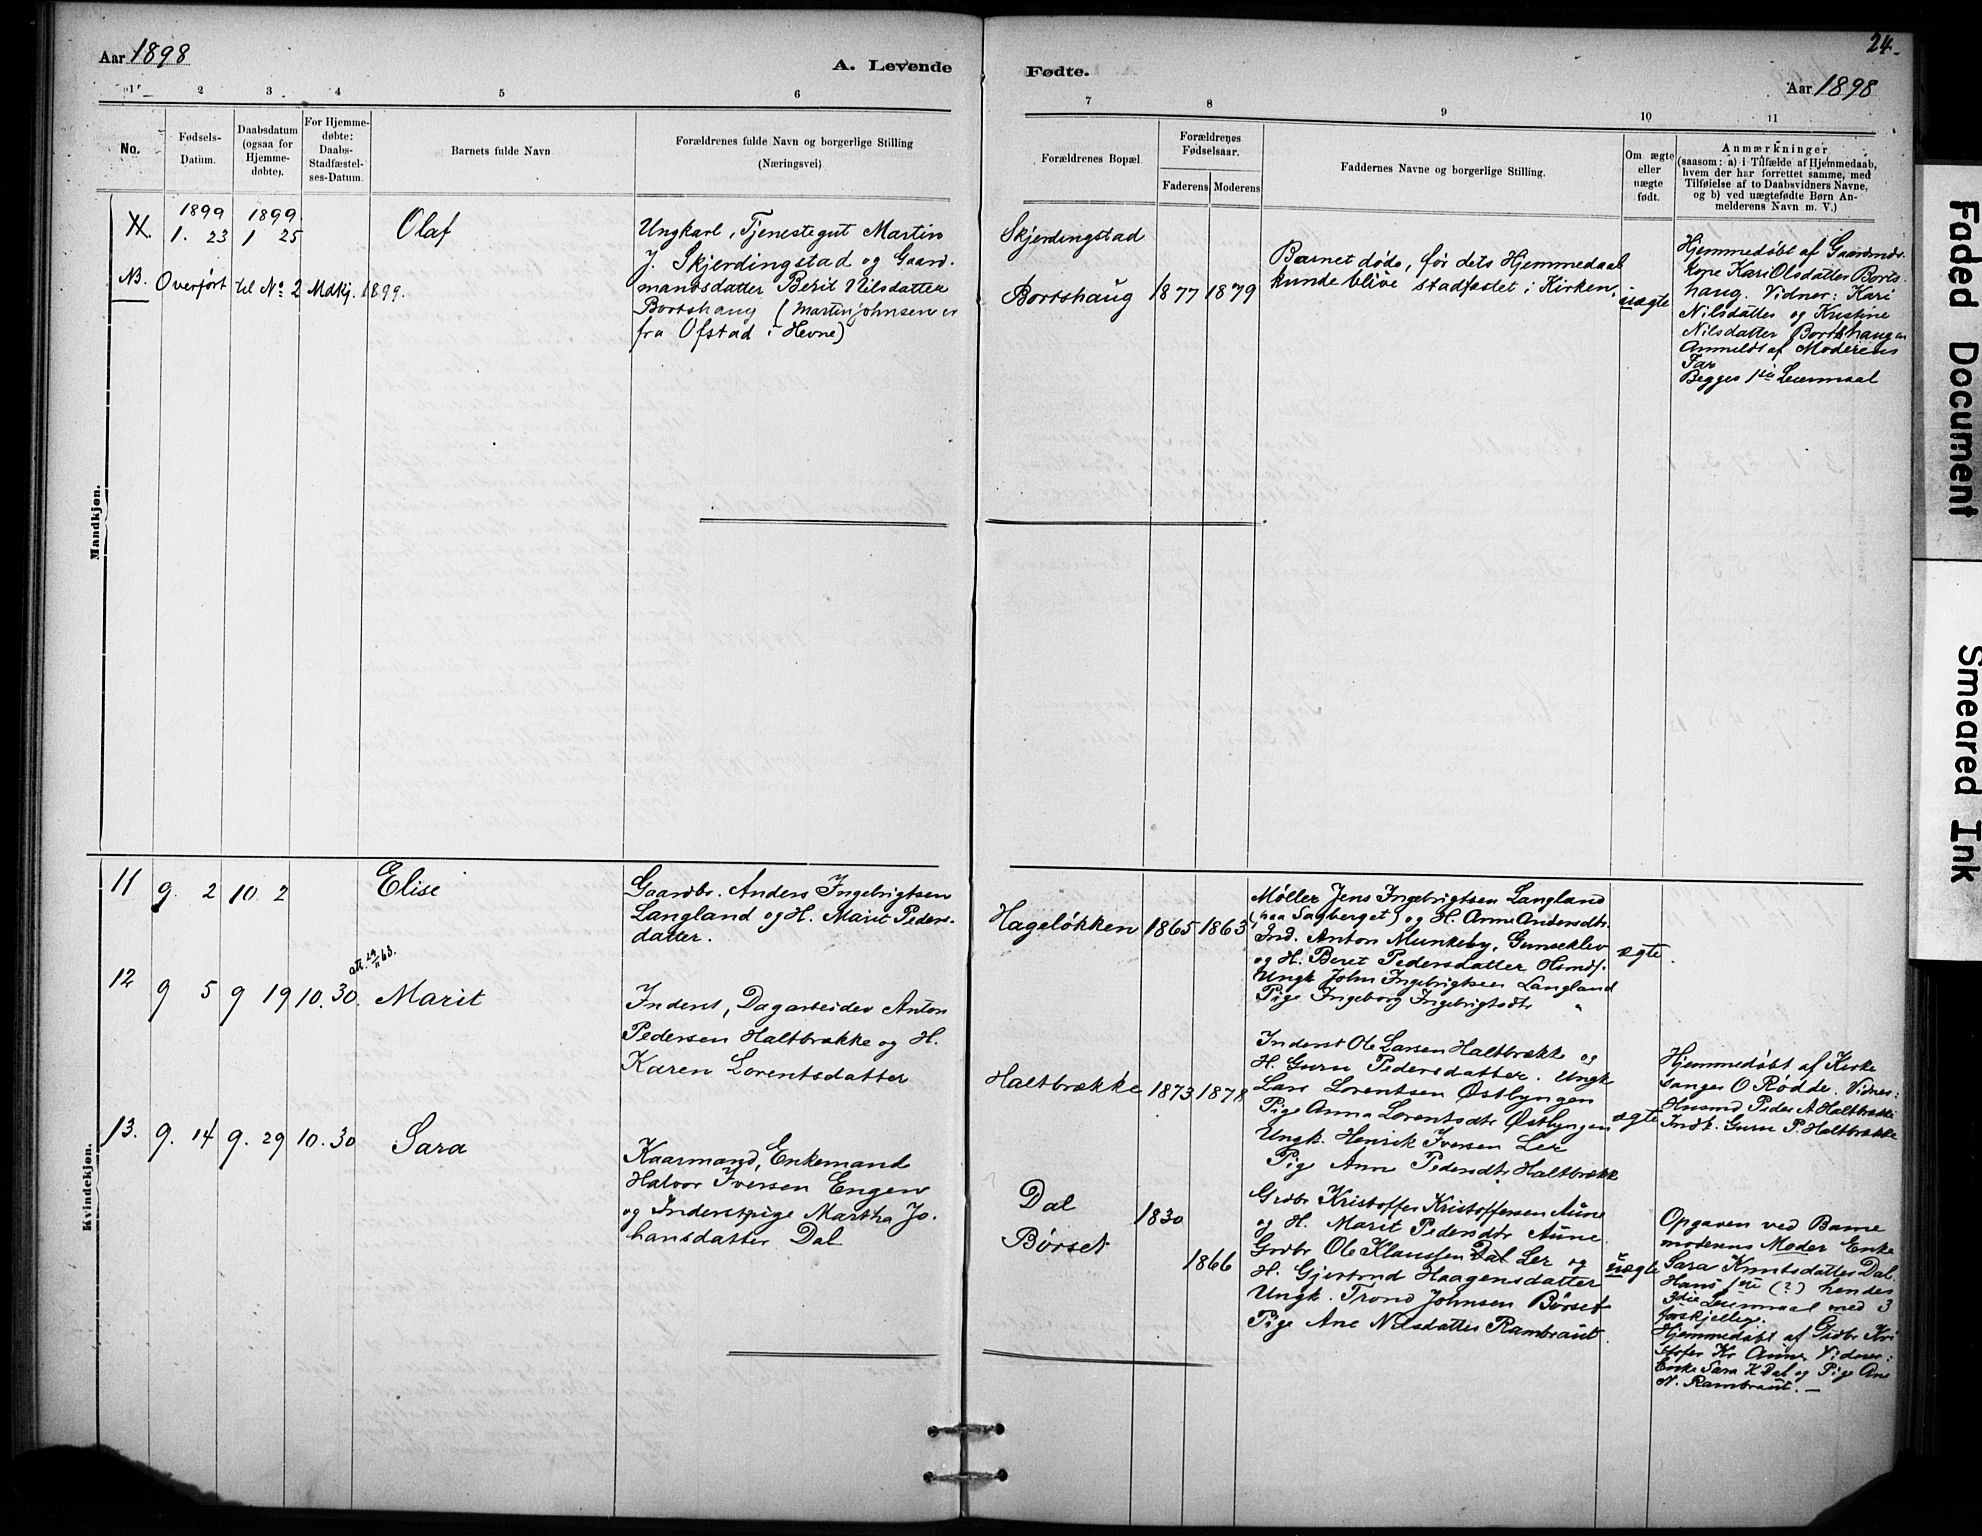 Aar 1898
A. Levende
Fødte.
24.
Aar 1898
1 2 3 4 5 6
7 8 9 10 11
No.
Fødsels-
Datum.
Daabsdatum
(ogsaa for
Hjemme-
døbte).
For Hjemme-
døbte:
Daabs-
Stadfæstel-
ses-Datum.
Barnets fulde Navn
Forældrenes fulde Navn og borgerlige Stilling
(Næringsvei)
Forældrenes Bopæl
Forældrenes
Fødselsaar.
Faderens
Moderens
Faddernes Navne og borgerlige Stilling.
Om ægte
eller
uægte
født.
Anmærkninger
(saasom: a) i Tilfælde af Hjemmedaab,
hvem der har forrettet samme, med
Tilføielse af to Daabsvidners Navne,
og b) ved uægtefødte Børn An-
melderens Navn m. V.)
Mandkjøn.
1899 1899
1. 23 1 25
Olaf
Ungkarl, Tjenestegut Martin
J. Skjerdingstad og Gaard-
mandsdatter Berit Nilsdatter
Bortshaug (Martin Johnsen er
fra Ofstad i Hevne)
NB. Overført til No 2 Mdkj. 1899.
Skjerdingstad
Bortshaug 1877 1879
Barnet døde, før dets Hjemmedaab
kunde blive stadfæstet i Kirken.
uægte
Hjemmedøbt af Gaardmds-
kone Kari Olsdatter Borts-
haug. Vidner: Kari
Nilsdatter og Kristine
Nilsdatter Bortshaug
Anmeldt af Moderens
Far
Begges 1ste Leiermaal
Kvindekjøn.
11 9. 2 10 2
Elise
Gaardbr. Anders Ingebrigtsen
Langland og H. Marit Peders-
datter.
Hageløkken 1865 1863
Møller Jens Ingebrigtsen Langland
(paa Sagberget) og H. Anne Andersdtr.
Ind. Anton Munkeby, Gunseklev
og H. Beret Pedersdatter
Ungk John Ingebrigtsen Langland
Pige Ingeborg Ingebrigtsdtr "
ægte.
12 9 5 9 19 10. 30.
Marit
Inderst, Dagarbeider Anton
Pedersen Haltbrække og H.
Karen Lorentsdatter
Haltbrække 1873 1878
Inderst Ole Larsen Haltbrække og
H. Guru Pedersdatter. Ungk
Lars Lorentsen Østbyngen
Pige Anna Lorentsdtr Østbyngen
Ungk. Henrik Iversen Ler
Pige Ane Pedersdtr Haltbrække
ægte
Hjemmedøbt af Kirke
sanger O Rødde. Vidner:
Husmd Peder A Haltbrække
Indk. Guru P. Haltbrække
13. 9. 14 9. 29 10. 30
Sara
Kaarmand, Enkemand
Halvor Iversen Engen
og Inderstpige Martha Jo-
hansdatter Dal
Dal 1830
Børset 1866
Grdbr Kristoffer Kristoffersen Aune
og H. Marit Pedersdtr Aune.
Grdbr Ole Klaussen Dal Ler og
H. Gjertrud Haagensdatter
Ungk. Trond Johnsen Børset
Pige Ane Nilsdatter Rambraut.
uægte
Opgaven ved Barne
moderens Moder Enke
Sara Knutsdatter Dal.
Hans 1ste (?) hendes
3die Leiermaal med 3
forskjellige.
Hjemmedøbt af Grdbr Kri
stofer Kr Aune Vidner:
Enke Sara K Dal og Pige Ane
N. Rambraut. —
Faded Document
Smeared Ink